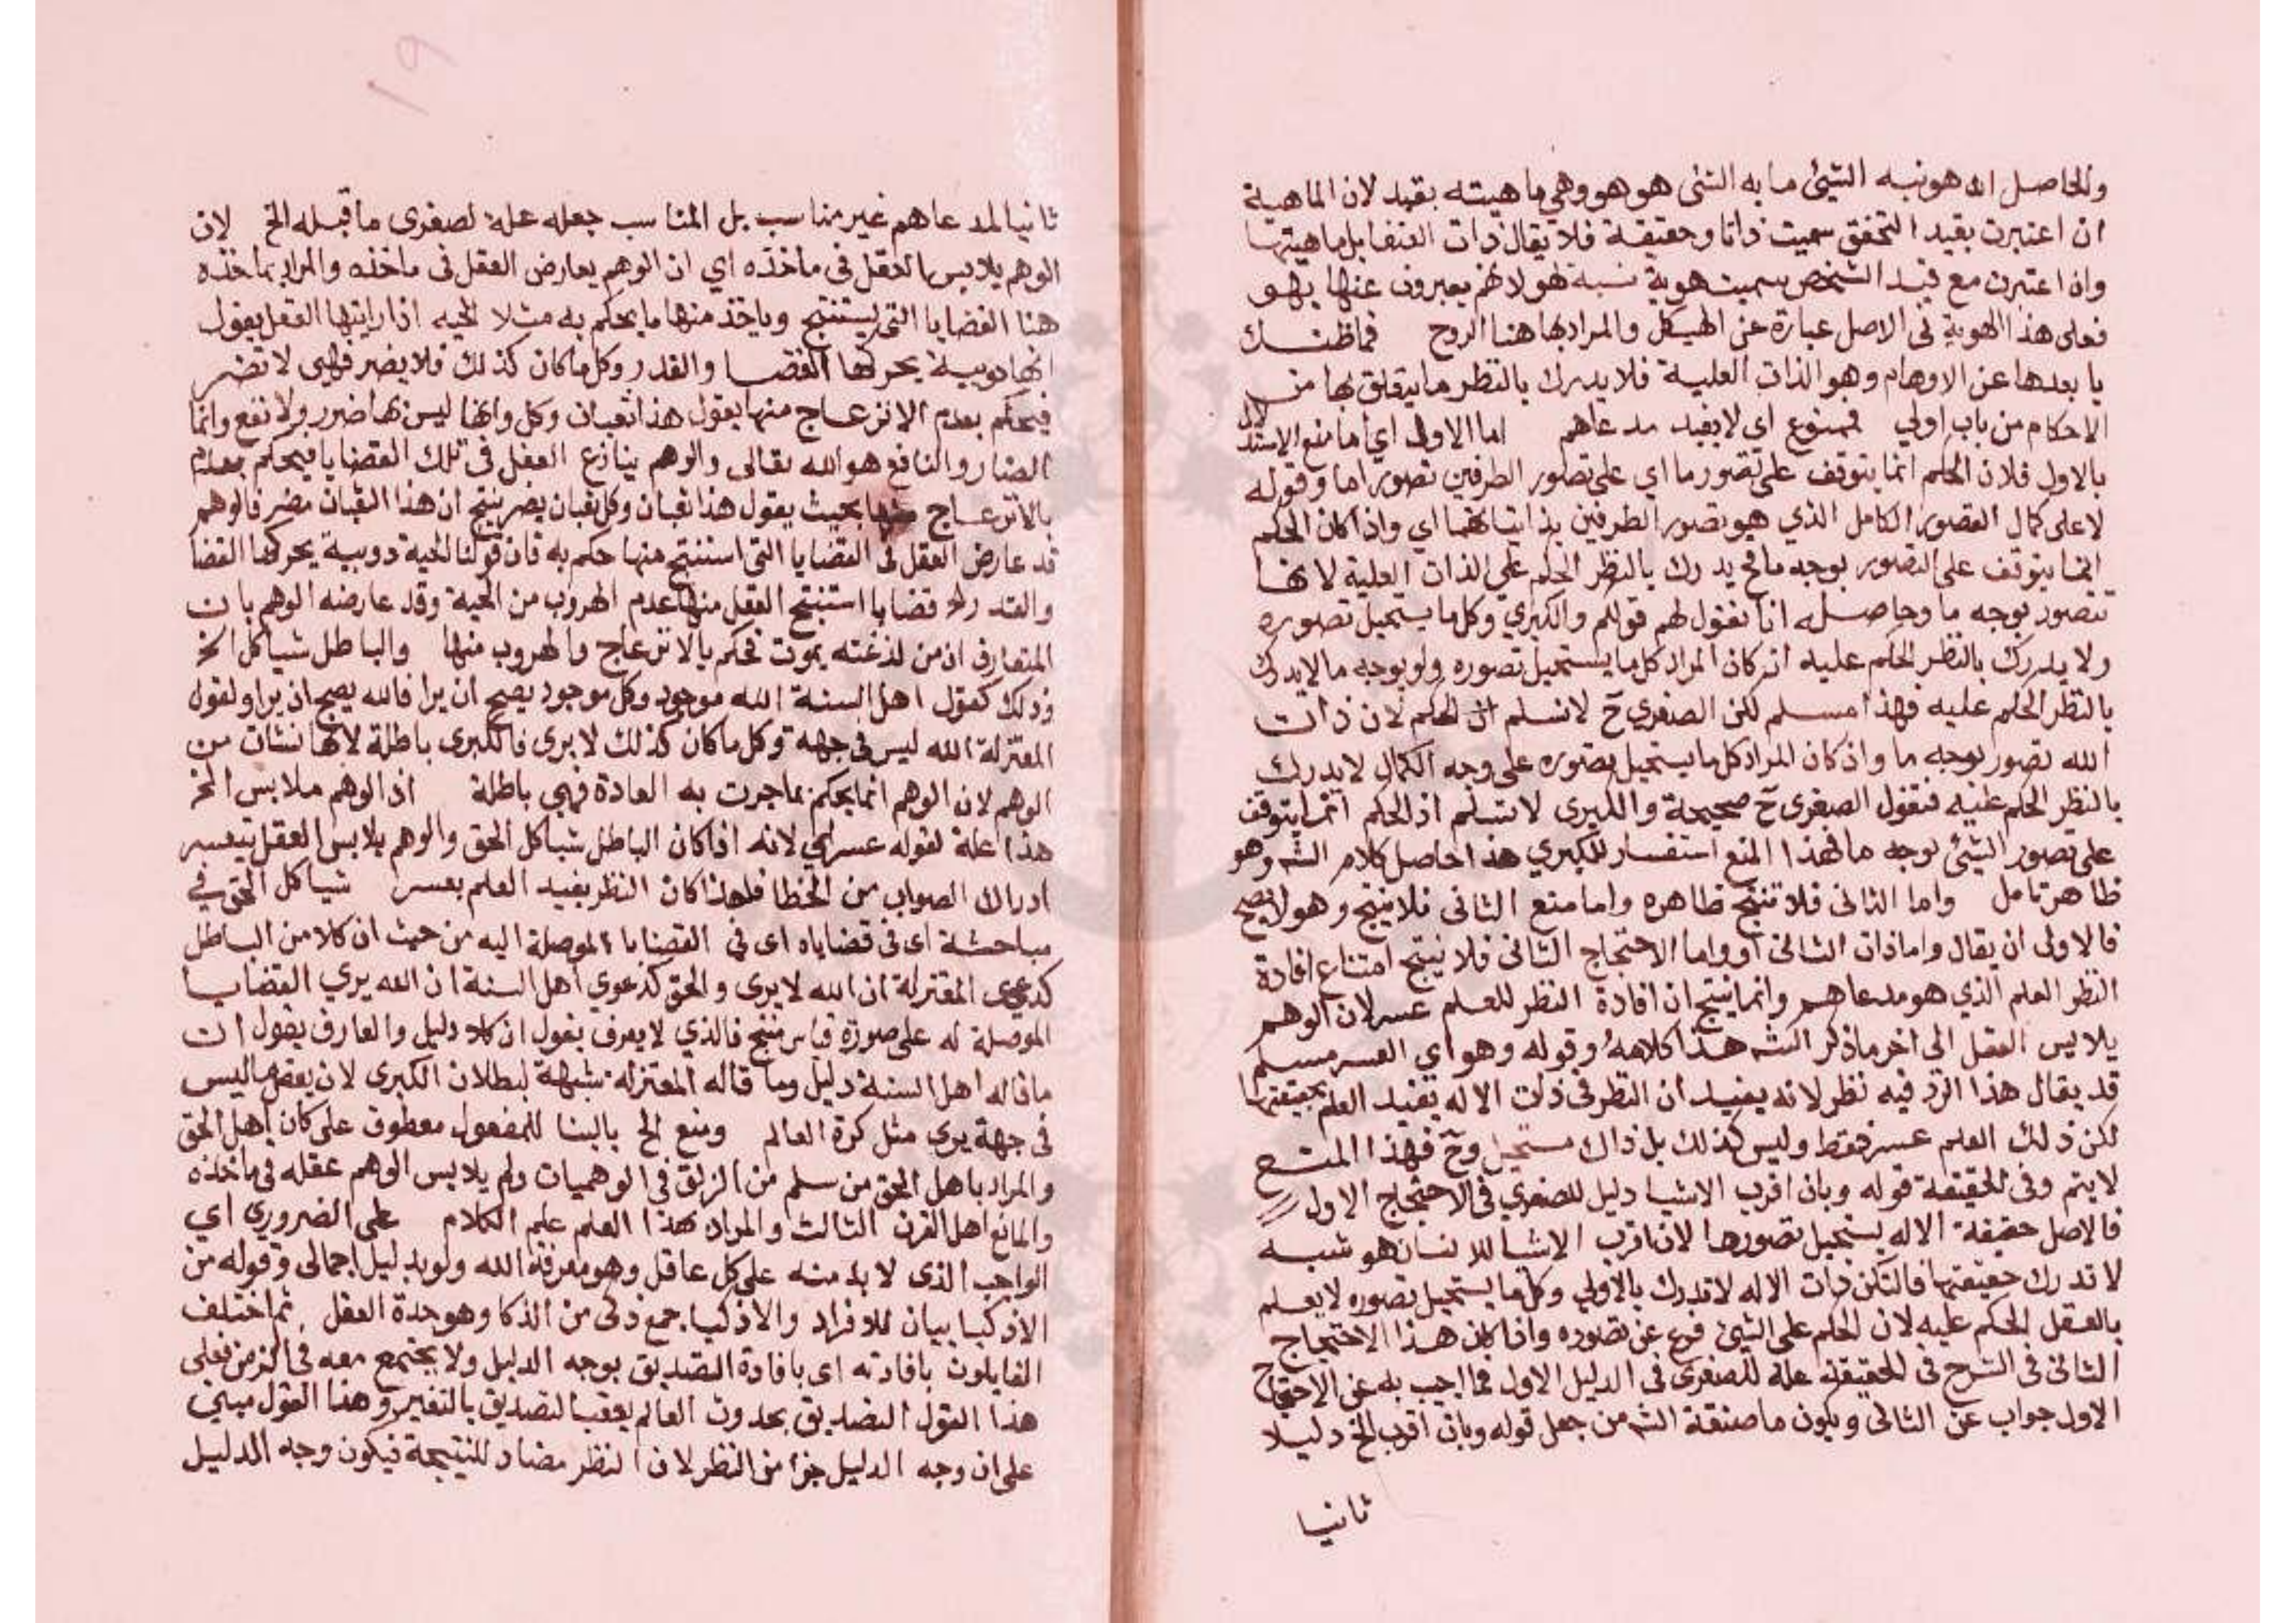 والحاصل انه هو نبه الشيئ ما به الشئ هو هو وهي ماهيته بقيد لان الماهية
ان اعتبرت بقيد التحقق سميت ذاتا وحقيقة فلا يقال ذات العنقا بل ماهيتها
وان اعتبرت مع قيد الشخص سميت هوية نسبة لهو لانهم يعبرون عنها بهو
فعلى هذا الهوية في الاصل عبارة عن الهيكل والمراد بها هنا الروح فما ظنك
يا بعدها عن الاوهام وهو الذات العلية فلا يدرك بالنظر ما يتعلق بها من
الاحكام من باب اولي فممنوع اي لا يفيد مدعاهم اما الاول اي اما منع الاستدلال
بالاول فلان الحكم انما يتوقف على تصور ما اي على تصور الطرفين تصورا ما وقوله
لا على كمال التصور الكامل الذي هو تصور الطرفين بذاتياتهما اي واذا كان الحكم
انما يتوقف على التصور بوجه ما فح يدرك بالنظر الحكم على الذات العلية لانها
تتصور بوجه ما وحاصله انا نقول لهم قولكم والكبري وكل ما يستحيل تصوره
ولا يدرك بالنظر الحكم عليه ان كان المراد كل ما يستحيل تصوره ولو بوجه ما لا يدرك
بالنظر الحكم عليه فهذا مسلم لكن الصغري ح لا نسلم الحكم لان ذات
الله تصور بوجه ما وان كان المراد كل ما يستحيل تصوره على وجه الكمال لا يدرك
بالنظر الحكم عليه فنقول الصغرى ح صحيحة والكبرى لا نسلم اذ الحكم انما يتوقف
على تصور الشيئ بوجه ما فهذا المنع استفسار للكبري هذا حاصل كلام الشه وهو
ظاهر تامل واما الثاني فلا تنتج ظاهره واما منع الثاني فلا ينتج وهو لا يصح
فالاولى ان يقال واما ذات الثاني او واما الاحتجاج الثاني فلا ينتج امتناع افادة
النظر العلم الذي هو مدعاهم وانما ينتج ان افادة النظر للعلم عسر لان الوهم
يلابس العقل الى اخر ما ذكر الشه هذا كلامه وقوله وهو اي العسر مسلم
قد يقال هذا الرد فيه نظر لانه يفيد ان النظر في ذات الاله يفيد العلم بحقيقتها
لكن ذلك العلم عسر فقط وليس كذلك بل ذاك مستحيل وح فهذا المنع
لا يتم وفى الحقيقة قوله وبان اقرب الاشيا دليل للصغري في الاحتجاج الاول
فالاصل حقيقة الاله يستحيل تصورها لان اقرب الاشيا للانسان هو شبه
لا تدرك حقيقتها فالتكن ذات الاله لا تدرك بالاولي وكل ما يستحيل تصوره لا يعلم
بالعقل الحكم عليه لان الحكم على الشيئ فرع عن تصوره واذا كان هذا الاحتجاج
الثاني في الشرح في الحقيقة علة للصغرى في الدليل الاول فما اجيب به عن الاحتجاج
الاول جواب عن الثاني ويكون ما صنعة الشه من جعل قوله وبان اقرب الخ دليلا
ثانيا
ثانيا لمدعاهم غير مناسب بل المناسب جعله علة لصغرى ما قبله الخ لان
الوهم يلابس العقل في ماخذه اي ان الوهم يعارض العقل في ماخذه والمراد بماخذه
هنا القضايا التي يستنتج وياخذ منها ما يحكم به مثلا الحيه اذا رايتها العقل يقول
انها دويبة يحركها القضا والقدر وكل ما كان كذلك فلا يضر فهي لا تضر
فيحكم بعدم الانزعاج منها بقول هذا ثعبان وكل وانها ليس بها ضرر ولا نفع وانما
الضار والنافع هو الله تعالى والوهم ينازع العقل في تلك القضايا فيحكم بعدم
بالانزعاج منها بحيث يقول هذا ثعبان وكل ثعبان يضر ينتج ان هذا الثعبان مضر فالوهم
قد عارض العقل في القضايا التي استنتج منها حكم به فان قولنا الحية دويبة يحركها القضا
والقدر قضايا استنتج العقل منها عدم الهروب من الحية وقد عارضه الوهم بان
المتعارف ان من لدغته يموت فحكم بالانزعاج والهروب منها والباطل شاكل الخ
وذلك كقول اهل السنة الله موجود وكل موجود يصح ان يرا فالله يصح ان يرا ولقول
المعتزلة الله ليس في جهة وكل ما كان كذلك لا يرى فالكبرى باطلة لانها نشات من
الوهم لان الوهم انما يحكم بما جرت به العادة فهي باطلة اذ الوهم ملابس الخ
هذا علة لقوله عسر اي لانه اذا كان الباطل شاكل الحق والوهم يلابس العقل يتعسر
ادراك الصواب من الخطا فلهذا كان النظر يفيد العلم بعسر شاكل الحق في
مباحثة اى في قضاياه اى في القضايا الموصلة اليه من حيث ان كلا من الباطل
كدعوى المعتزلة ان الله لا يرى والحق كدعوي اهل السنة ان الله يري القضايا
الموصلة له على صورة قياس منتج فالذي لا يعرف يقول ان كلا دليل والعارف يقول ان
ما قاله اهل السنة دليل وما قاله المعتزلة شبهة لبطلان الكبرى لان بعض ما ليس
في جهة يري مثل كرة العالم ومنع الخ بالبنا للمفعول معطوف على كان اهل الحق
والمراد باهل الحق من سلم من الزلق في الوهميات ولم يلابس الوهم عقله في ماخذه
والمانع اهل القرن الثالث والمراد بهذا العلم علم الكلام على الضروري اي
الواجب الذى لا بد منه على كل عاقل وهو معرفة الله ولو بدليل اجمالى وقوله من
الاذكيا بيان للافراد والاذكيا جمع ذكى من الذكا وهو حدة العقل ثم اختلف
القايلون بافادته اى بافادة التصديق بوجه الدليل ولا يجتمع معه في الزمن فعلى
هذا القول التصديق بحدوث العالم يعقب التصديق بالتغير وهذا القول مبني
على ان وجه الدليل جزا من النظر لان النظر مضاد للنتيجة فيكون وجه الدليل